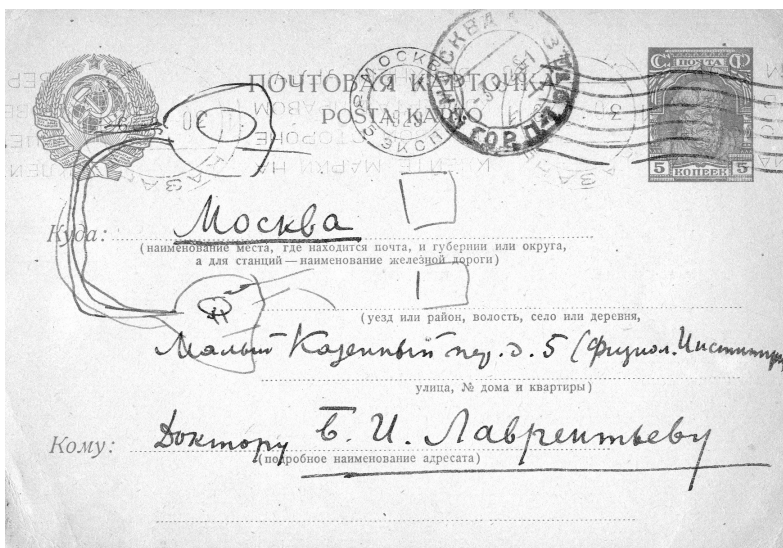 ПОЧТОВАЯ КАРТОЧКА
POSTA KARTO
С. ПОЧТА С.
5 КОПЕЕК 5
МОСКВА
ЭКСП
Куда: Москва
(наименование места, где находится почта, и губернии или округа,
а для станций — наименование железной дороги)
(уезд или район, волость, село или деревня,
Малый Казенный пер. д. 5 (Физиол. Институт
улица, № дома и квартиры)
Кому: Доктору Б. И. Лаврентьеву
(подробное наименование адресата)